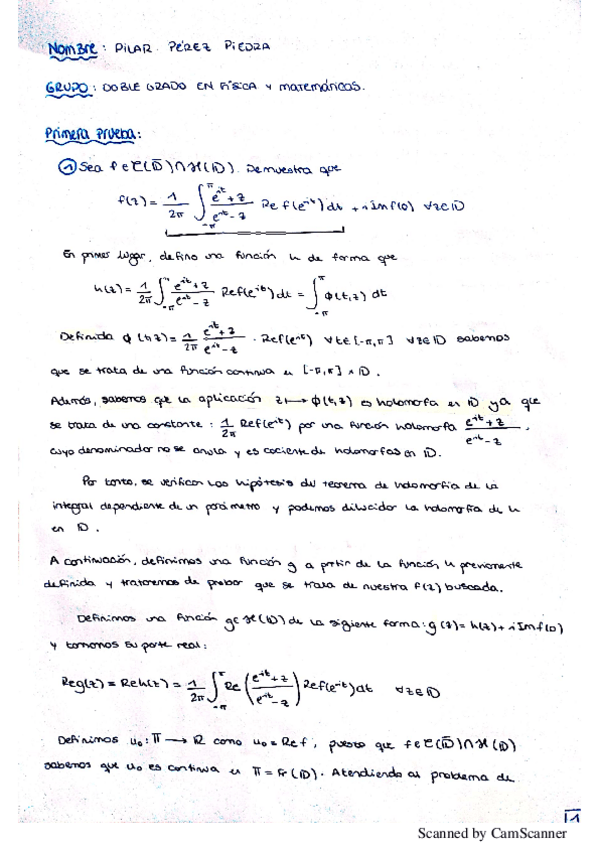 Nombre: PILAR PÉREZ PIEDRA
GRUPO: DOBLE GRADO EN FÍSICA Y matemáticas.
Primera Prueba:
① Sea f ∈ C(D̄) ∩ H(D). Demuestra que
f(z) = 1/2π ∫_{-π}^{π} (e^{it}+z)/(e^{it}-z) Re f(e^{it}) dt + i Im f(0) ∀z∈D
En primer lugar, defino una función h de forma que
h(z) = 1/2π ∫_{-π}^{π} (e^{it}+z)/(e^{it}-z) Ref(e^{it}) dt = ∫_{-π}^{π} ϕ(t,z) dt
Definida ϕ(t,z) = 1/2π (e^{it}+z)/(e^{it}-z) · Ref(e^{it}) ∀t∈[-π,π] ∀z∈D sabemos
que se trata de una función continua en [-π,π] × D.
Además, sabemos que la aplicación z ⟼ ϕ(t,z) es holomorfa en D ya que
se trata de una constante: 1/2π Ref(e^{it}) por una función holomorfa (e^{it}+z)/(e^{it}-z),
cuyo denominador no se anula y es cociente de holomorfas en D.
Por tanto, se verifican las hipótesis del teorema de holomorfía de la
integral dependiente de un parámetro y podemos dilucidar la holomorfía de h
en D.
A continuación, definimos una función g a partir de la función h previamente
definida y trataremos de probar que se trata de nuestra f(z) buscada.
Definimos una función g∈H(D) de la siguiente forma: g(z) = h(z) + i Imf(0)
y tomamos su parte real:
Reg(z) = Reh(z) = 1/2π ∫_{-π}^{π} Re((e^{it}+z)/(e^{it}-z)) Ref(e^{it}) dt ∀z∈D
Definimos u₀: T ⟶ R como u₀ = Ref, puesto que f∈C(D̄)∩H(D)
sabemos que u₀ es continua en T = Fr(D). Atendiendo al problema de
1
Scanned by CamScanner